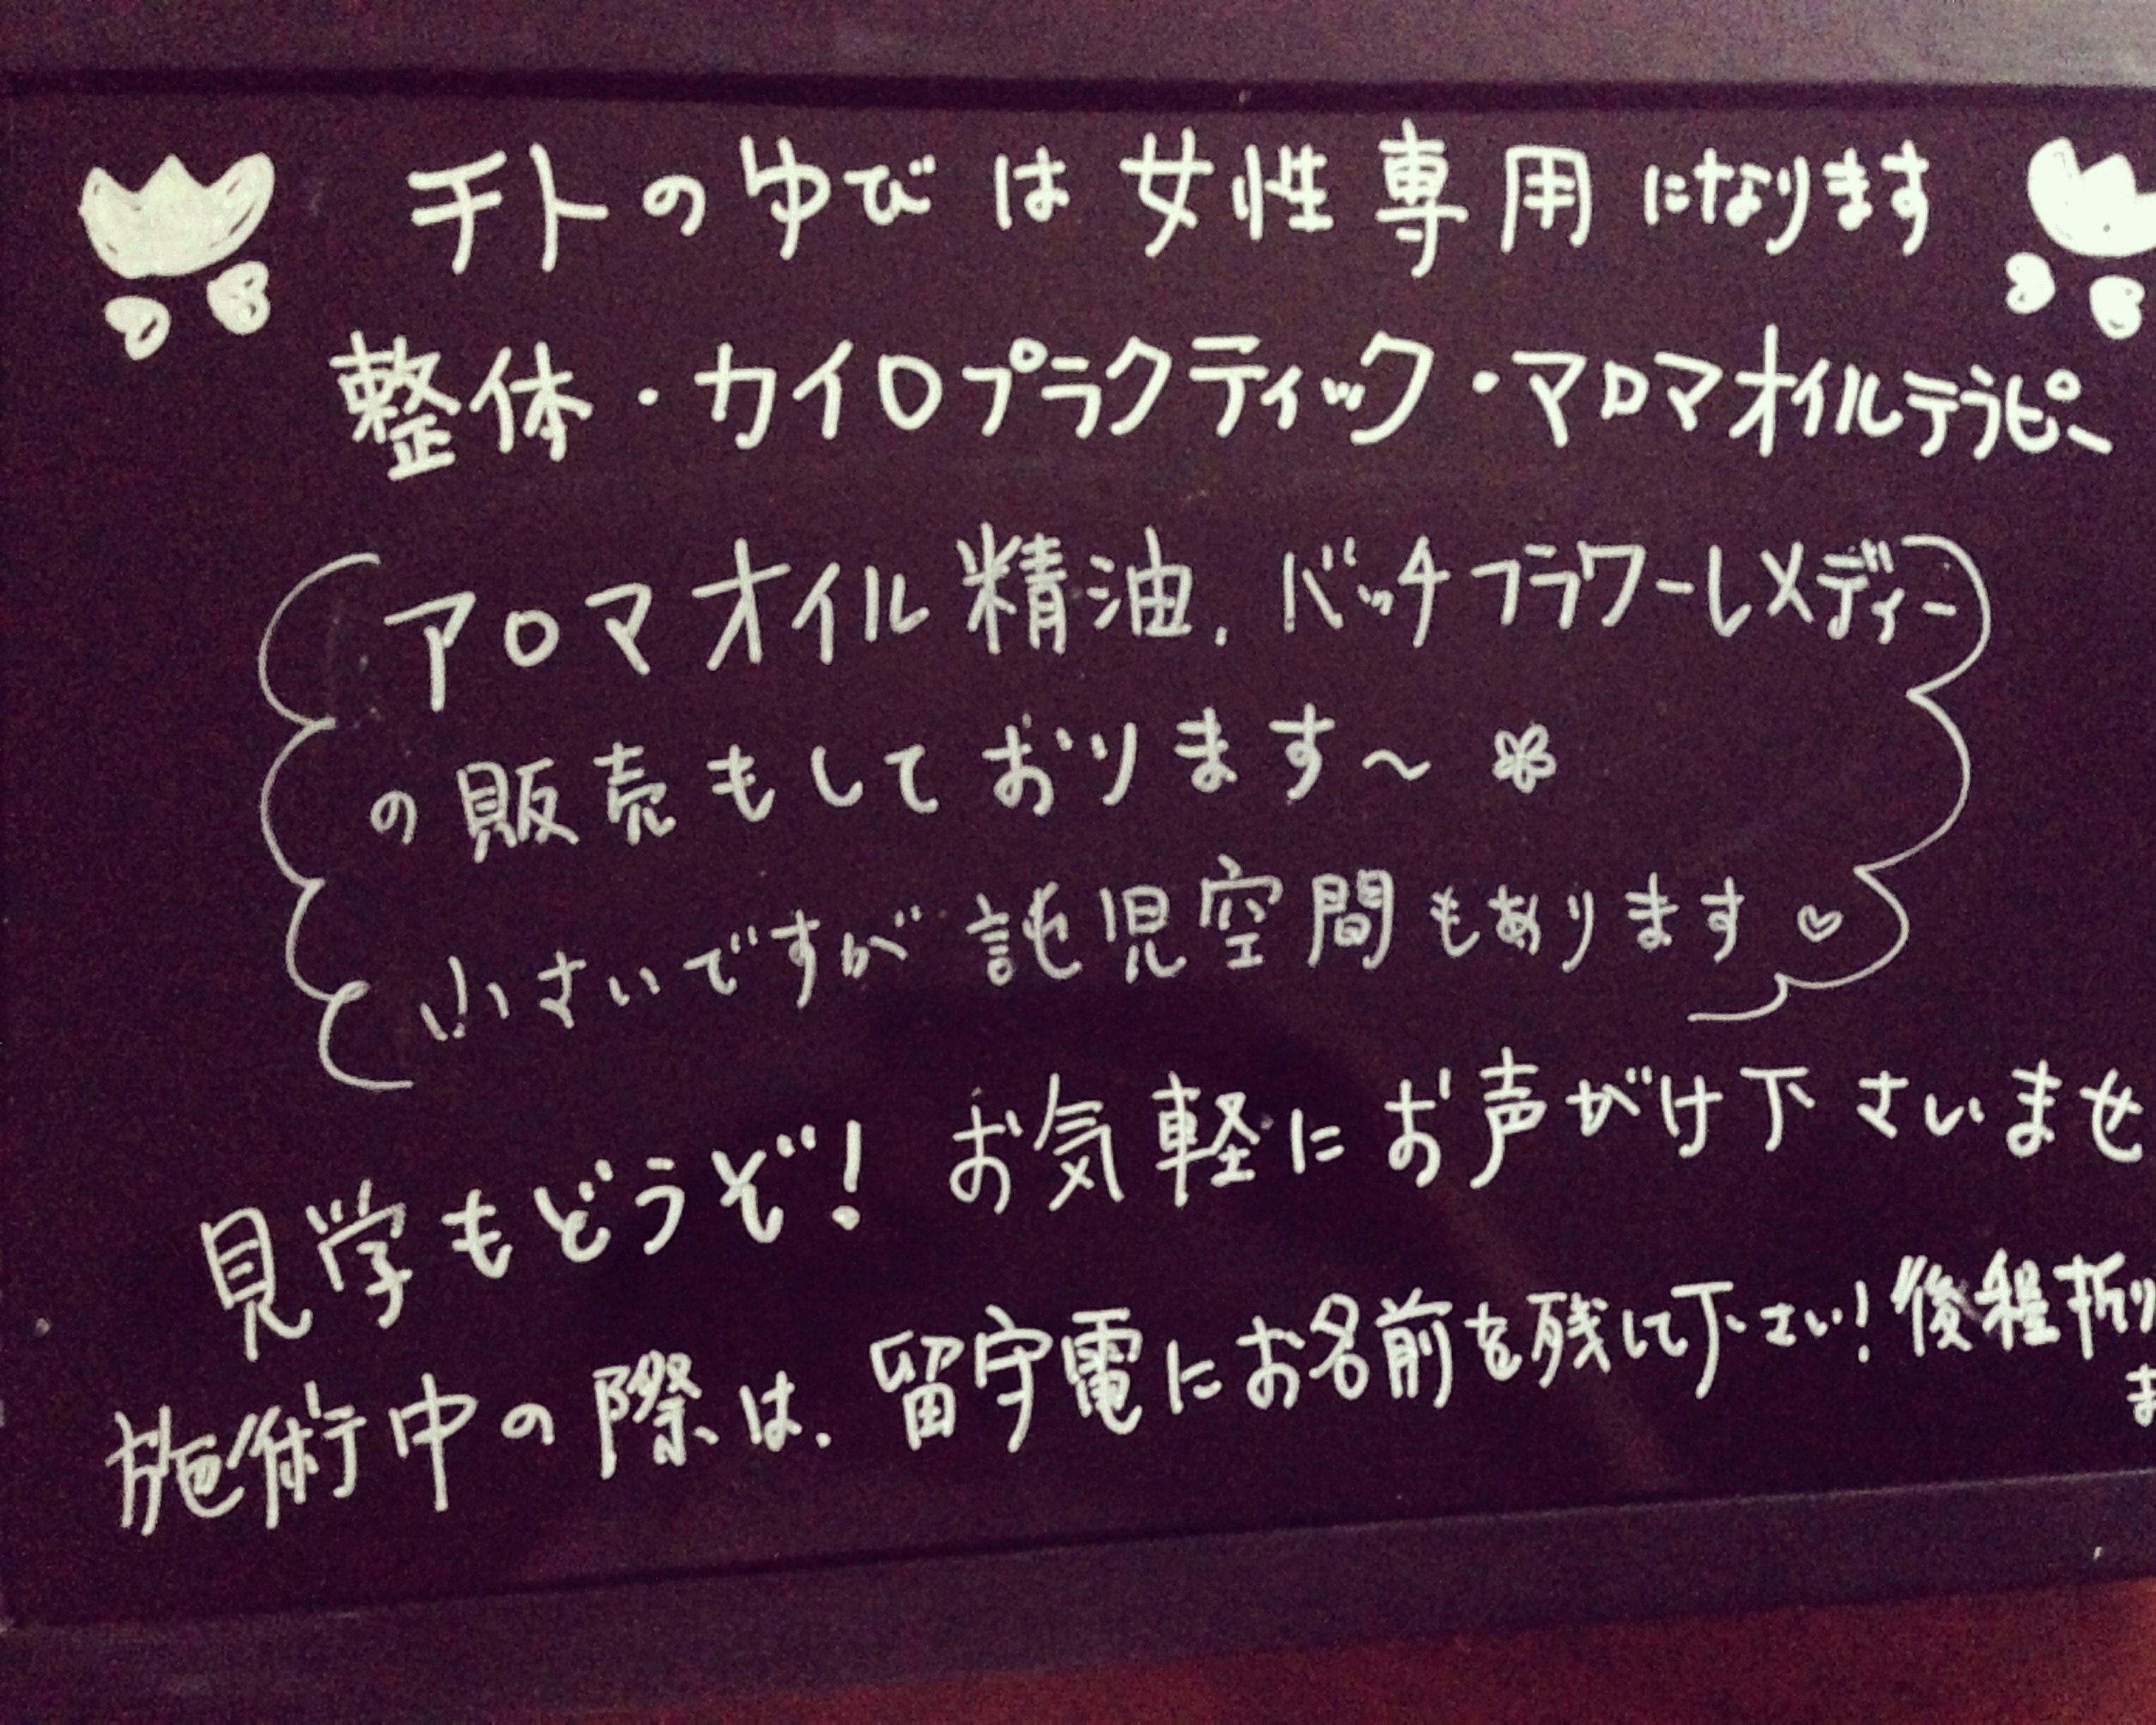 チトのゆびは女性専用になります
整体・カイロプラクティック・アロマオイルテラピー
アロマオイル精油、バッチフラワーレメディー
の販売もしております〜
小さいですが託児空間もあります♡
見学もどうぞ！ お気軽にお声がけ下さいませ
施術中の際は、留守電にお名前を残して下さい！後程折り
ま